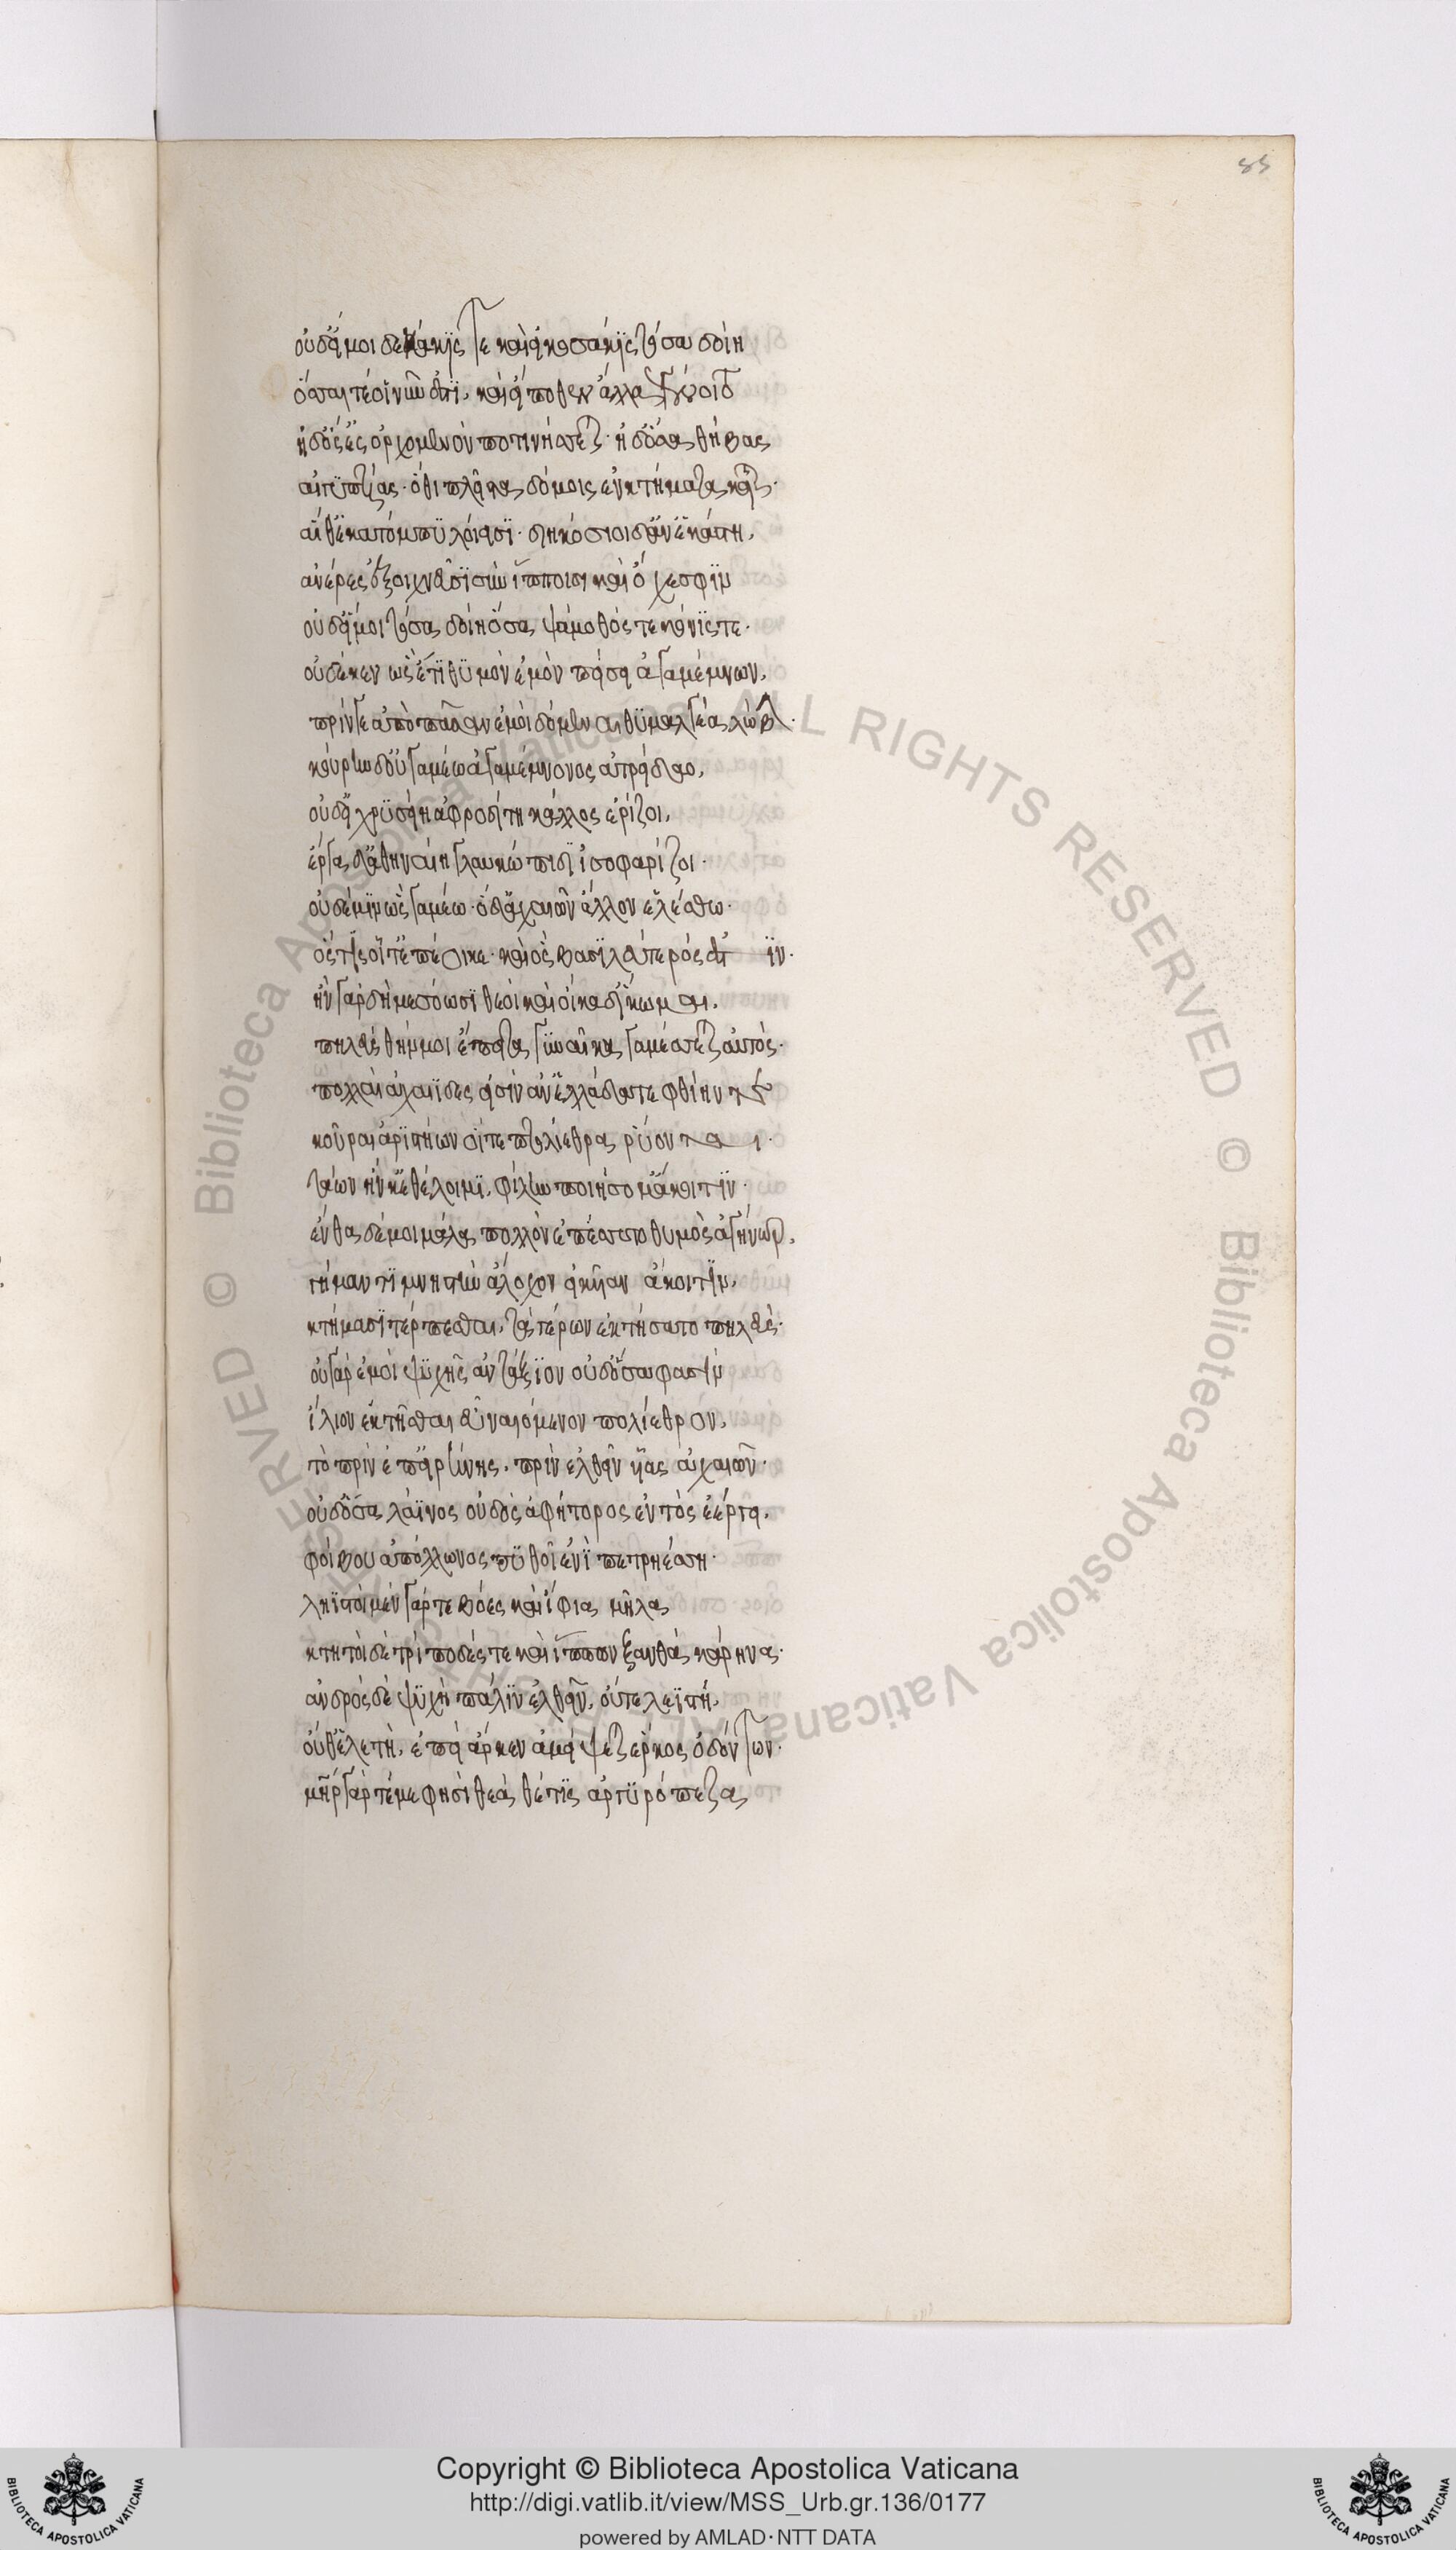 85
οὐδ' εἴ μοι δεκάκις τε καὶ εἰκοσάκις τόσα δοίη
ὅσσά τέ οἱ νῦν ἐστί, καὶ εἴ ποθεν ἄλλα γένοιτο
ἠδ' ὅσ' ἐς ὀρχομενὸν ποτινήσεται· ἠδ' ὅσα θήβας
αἰγυπτίας· ὅθι πλεῖστα δόμοις ἐν κτήματα κεῖται·
αἵ θ' ἑκατόμπυλοί εἰσι· διηκόσιοι δ' ἀν' ἑκάστην,
ἀνέρες ἐξοιχνεῦσι σὺν ἵπποισι καὶ ὄχεσφιν
οὐδ' εἴ μοι τόσα δοίη ὅσα ψάμαθός τε κόνις τε·
οὐδέ κεν ὣς ἔτι θυμὸν ἐμὸν πείσει ἀγαμέμνων,
πρίν γε ἀπὸ πᾶσαν ἐμοὶ δόμεναι θυμαλγέα λώβην·
κούρην δ' οὐ γαμέω ἀγαμέμνονος ἀτρείδαο,
οὐδ' εἰ χρυσείη ἀφροδίτη κάλλος ἐρίζοι,
ἔργα δ' ἀθηναίη γλαυκώπιδι ἰσοφαρίζοι·
οὐδέ μιν ὣς γαμέω· ὁ δ' ἀχαιῶν ἄλλον ἑλέσθω·
ὅς τις οἷ τ' ἐπέοικε· καὶ ὃς βασιλεύτερός ἐστιν·
ἢν γὰρ δή με σόωσι θεοὶ καὶ οἴκαδ' ἵκωμαι,
πηλεύς θήν μοι ἔπειτα γυναῖκα γαμέσσεται αὐτός·
πολλαὶ ἀχαιΐδες εἰσὶν ἀν' ἑλλάδα τε φθίην τε
κοῦραι ἀριστήων οἵ τε πτολίεθρα ῥύονται·
τάων ἥν κε θέλοιμι, φίλην ποιήσομ' ἄκοιτιν·
ἔνθα δέ μοι μάλα πολλὸν ἐπέσσυτο θυμὸς ἀγήνωρ,
γήμαντι μνηστὴν ἄλοχον εἰκυῖαν ἄκοιτιν,
κτήμασι τέρπεσθαι, τὰ γέρων ἐκτήσατο πηλεύς·
οὐ γὰρ ἐμοὶ ψυχῆς ἀντάξιον οὐδ' ὅσα φασὶν
ἴλιον ἐκτῆσθαι εὖ ναιόμενον πολίεθρον,
τὸ πρὶν ἐπ' εἰρήνης, πρὶν ἐλθεῖν υἷας ἀχαιῶν·
οὐδ' ὅσα λάϊνος οὐδὸς ἀφήτορος ἐντὸς ἐέργει,
φοίβου ἀπόλλωνος πυθοῖ ἐνὶ πετρηέσση·
ληϊστοὶ μὲν γάρ τε βόες καὶ ἴφια μῆλα
κτητοὶ δὲ τρίποδές τε καὶ ἵππων ξανθὰ κάρηνα·
ἀνδρὸς δὲ ψυχὴ πάλιν ἐλθεῖν, οὔτε λεϊστή,
οὔθ' ἑλετὴ, ἐπεὶ ἄρ κεν ἀμείψεται ἕρκος ὀδόντων·
μήτηρ γάρ τέ με φησὶ θεὰ θέτις ἀργυρόπεζα
Copyright © Biblioteca Apostolica Vaticana
http://digi.vatlib.it/view/MSS_Urb.gr.136/0177
powered by AMLAD·NTT DATA